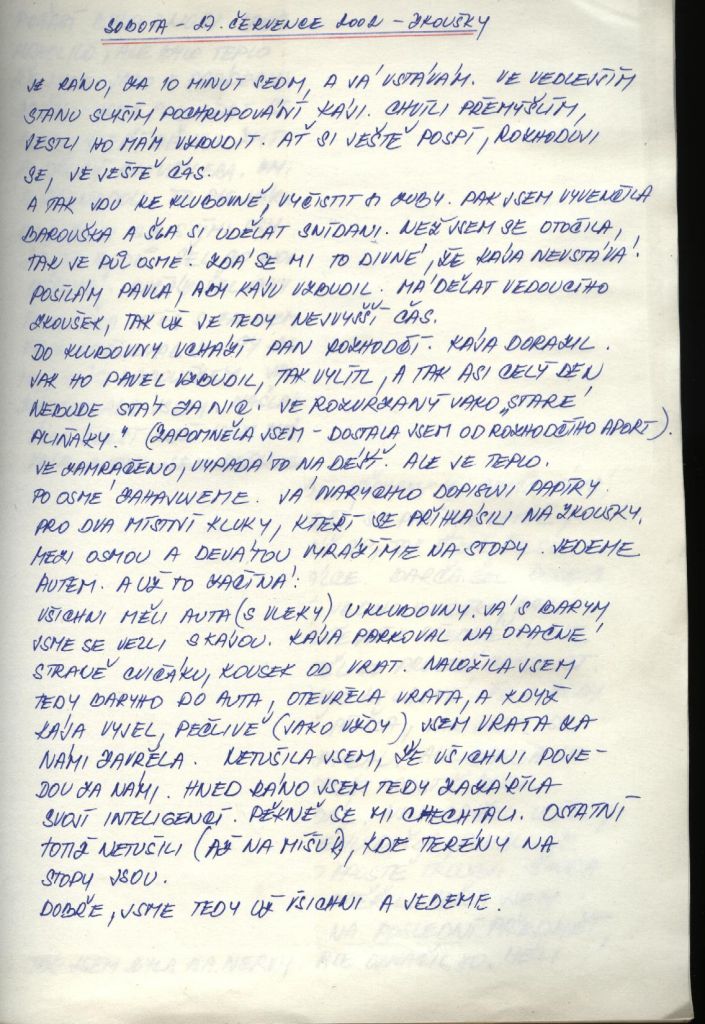 SOBOTA - 27. ČERVENCE 2002 - ZKOUŠKY
JE RÁNO, ZA 10 MINUT SEDM, A JÁ VSTÁVÁM. VE VEDLEJŠÍM
STANU SLYŠÍM POCHRUPOVÁNÍ KÁJI. CHVÍLI PŘEMÝŠLÍM,
JESTLI HO MÁM VZBUDIT. AŤ SI JEŠTĚ POSPÍ, ROZHODUJI
SE, JE JEŠTĚ ČAS.
A TAK JDU KE KLUBOVNĚ, VYČISTIT SI ZUBY. PAK JSEM VYVENČILA
BAROUŠKA A ŠLA SI UDĚLAT SNÍDANI. NEŽ JSEM SE OTOČILA,
TAK JE PŮL OSMÉ. ZDÁ SE MI TO DIVNÉ, ŽE KÁJA NEVSTÁVÁ.
POSÍLÁM PAVLA, ABY KÁJU VZBUDIL. MÁ DĚLAT VEDOUCÍHO
ZKOUŠEK, TAK UŽ JE TEDY NEJVYŠŠÍ ČAS.
DO KLUBOVNY VCHÁZÍ PAN ROZHODČÍ. KÁJA DORAZIL.
JAK HO PAVEL VZBUDIL, TAK VYLÍTL, A TAK ASI CELÝ DEN
NEBUDE STÁT ZA NIC. JE ROZVRZANÝ JAKO „STARÉ
ALIŇÁKY." (ZAPOMNĚLA JSEM - DOSTALA JSEM OD ROZHODČÍHO APORT).
JE ZAMRAČENO, VYPADÁ TO NA DÉŠŤ. ALE JE TEPLO.
PO OSMÉ ZAHAJUJEME. JÁ NARYCHLO DOPISUJI PAPÍRY
PRO DVA MÍSTNÍ KLUKY, KTEŘÍ SE PŘIHLÁSILI NA ZKOUŠKY.
MEZI OSMOU A DEVÁTOU VYRÁŽÍME NA STOPY. JEDEME
AUTEM. A UŽ TO ZAČÍNÁ:
VŠICHNI MĚLI AUTA (S VLEKY) U KLUBOVNY. JÁ S BARYM
JSME SE VEZLI S KÁJOU. KÁJA PARKOVAL NA OPAČNÉ
STRANĚ CVIČÁKU, KOUSEK OD VRAT. NALOŽILA JSEM
TEDY BARYHO DO AUTA, OTEVŘELA VRATA, A KDYŽ
KÁJA VYJEL, PEČLIVĚ (JAKO VŽDY) JSEM VRATA ZA
NÁMI ZAVŘELA. NETUŠILA JSEM, ŽE VŠICHNI POJE-
DOU ZA NÁMI. HNED RÁNO JSEM TEDY ZAZÁŘILA
SVOJÍ INTELIGENCÍ. PĚKNĚ SE MI CHECHTALI. OSTATNÍ
TOTIŽ NETUŠILI (AŽ NA MÍŠU), KDE TERÉNY NA
STOPY JSOU.
DOBŘE, JSME TEDY UŽ VŠICHNI A JEDEME.